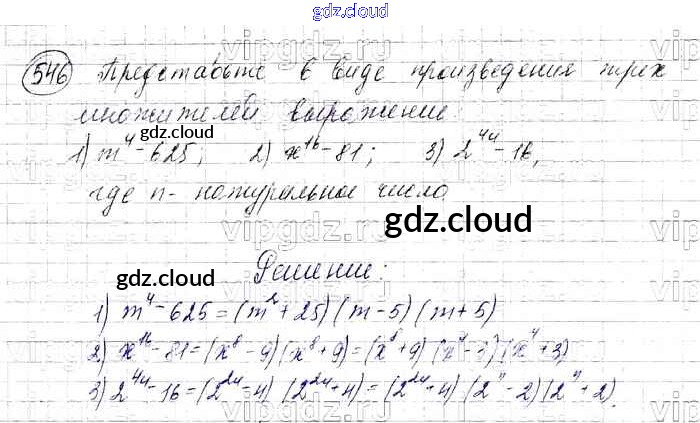 gdz.cloud
546 Представьте в виде произведения трех
множителей выражение:
1) m⁴ - 625; 2) x¹⁶ - 81; 3) 2⁴ⁿ - 16,
где n - натуральное число
gdz.cloud
gdz.cloud
gdz.cloud
Решение:
1) m⁴ - 625 = (m² + 25) (m - 5) (m + 5)
2) x¹⁶ - 81 = (x⁸ - 9) (x⁸ + 9) = (x⁸ + 9) (x⁴ - 3) (x⁴ + 3)
3) 2⁴ⁿ - 16 = (2²ⁿ - 4) (2²ⁿ + 4) = (2²ⁿ + 4) (2ⁿ - 2) (2ⁿ + 2)